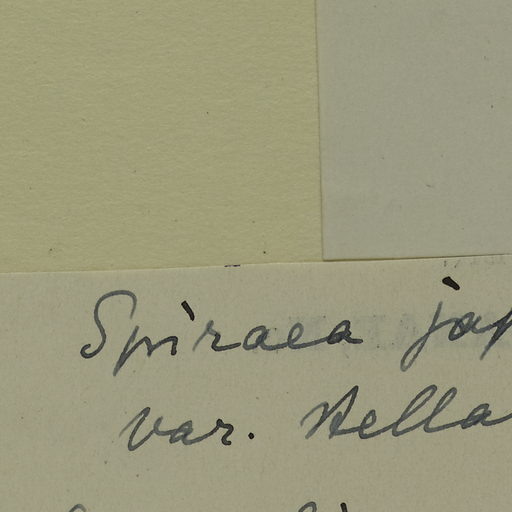 Spiraea jap
var. stella